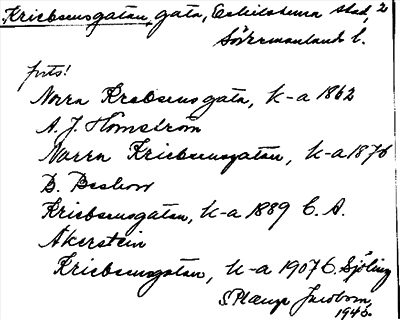 Kriebsensgatan, gata, Eskilstuna stad, 2
Södermanland l.
forts!
Norra Krebsens gata, k-a 1862
A. J. Homström
Norra Kriebsensgatan, k-a 1876
D. Beskow
Kriebsensgatan, k-a 1889 C. A.
Åkerstein
Kriebsensgatan, k-a 1907 C. Sjöling
1945.